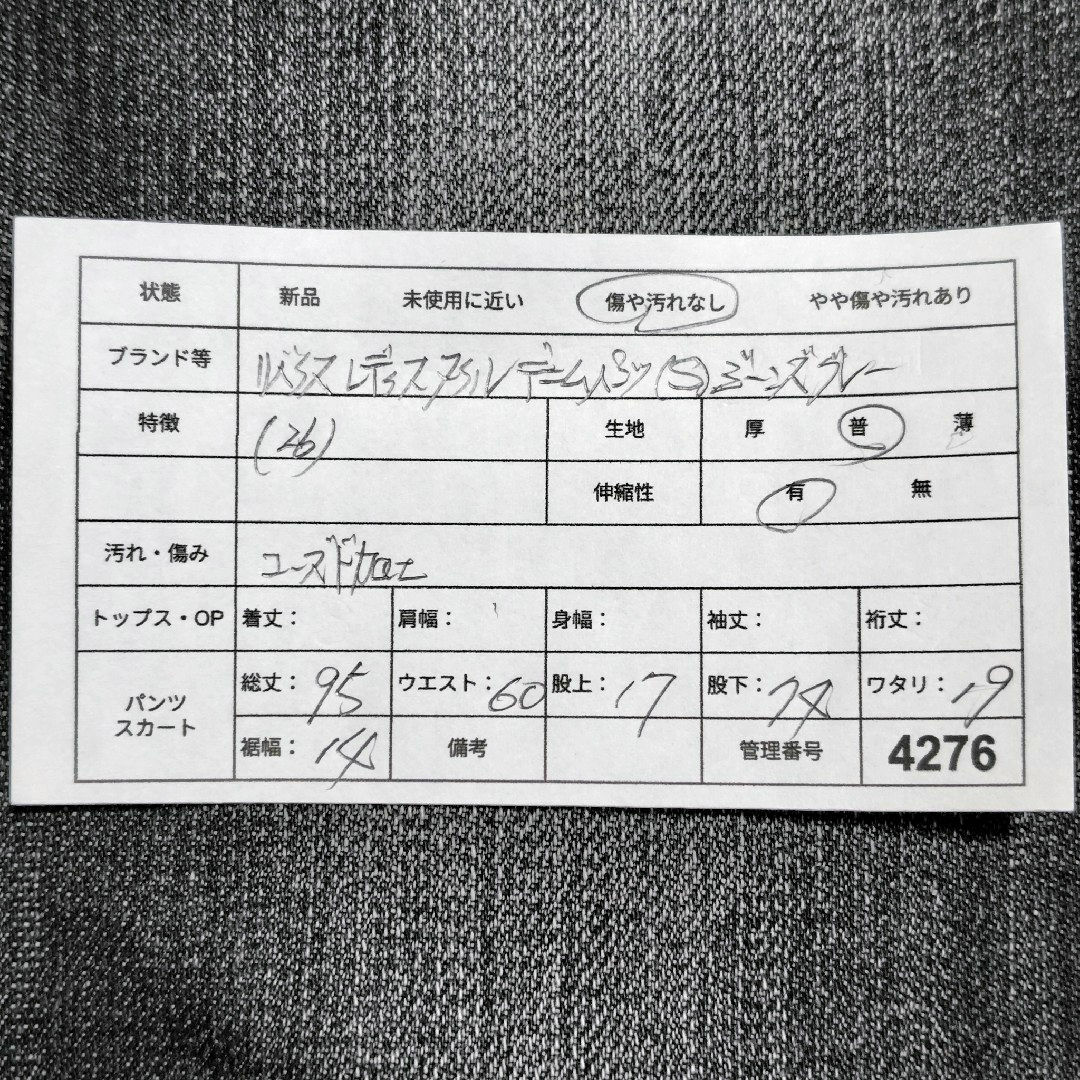 状態 新品 未使用に近い 傷や汚れなし やや傷や汚れあり
ブランド等 リバイス レディス デニムパンツ(S)ジーンズグレー
特徴 (26) 生地 厚 普 薄
伸縮性 有 無
汚れ・傷み ユーズド加工
トップス・OP 着丈: 肩幅: 身幅: 袖丈: 裄丈:
パンツ スカート 総丈: 95 ウエスト: 60 股上: 17 股下: 74 ワタリ: 19
裾幅: 14 備考 管理番号 4276